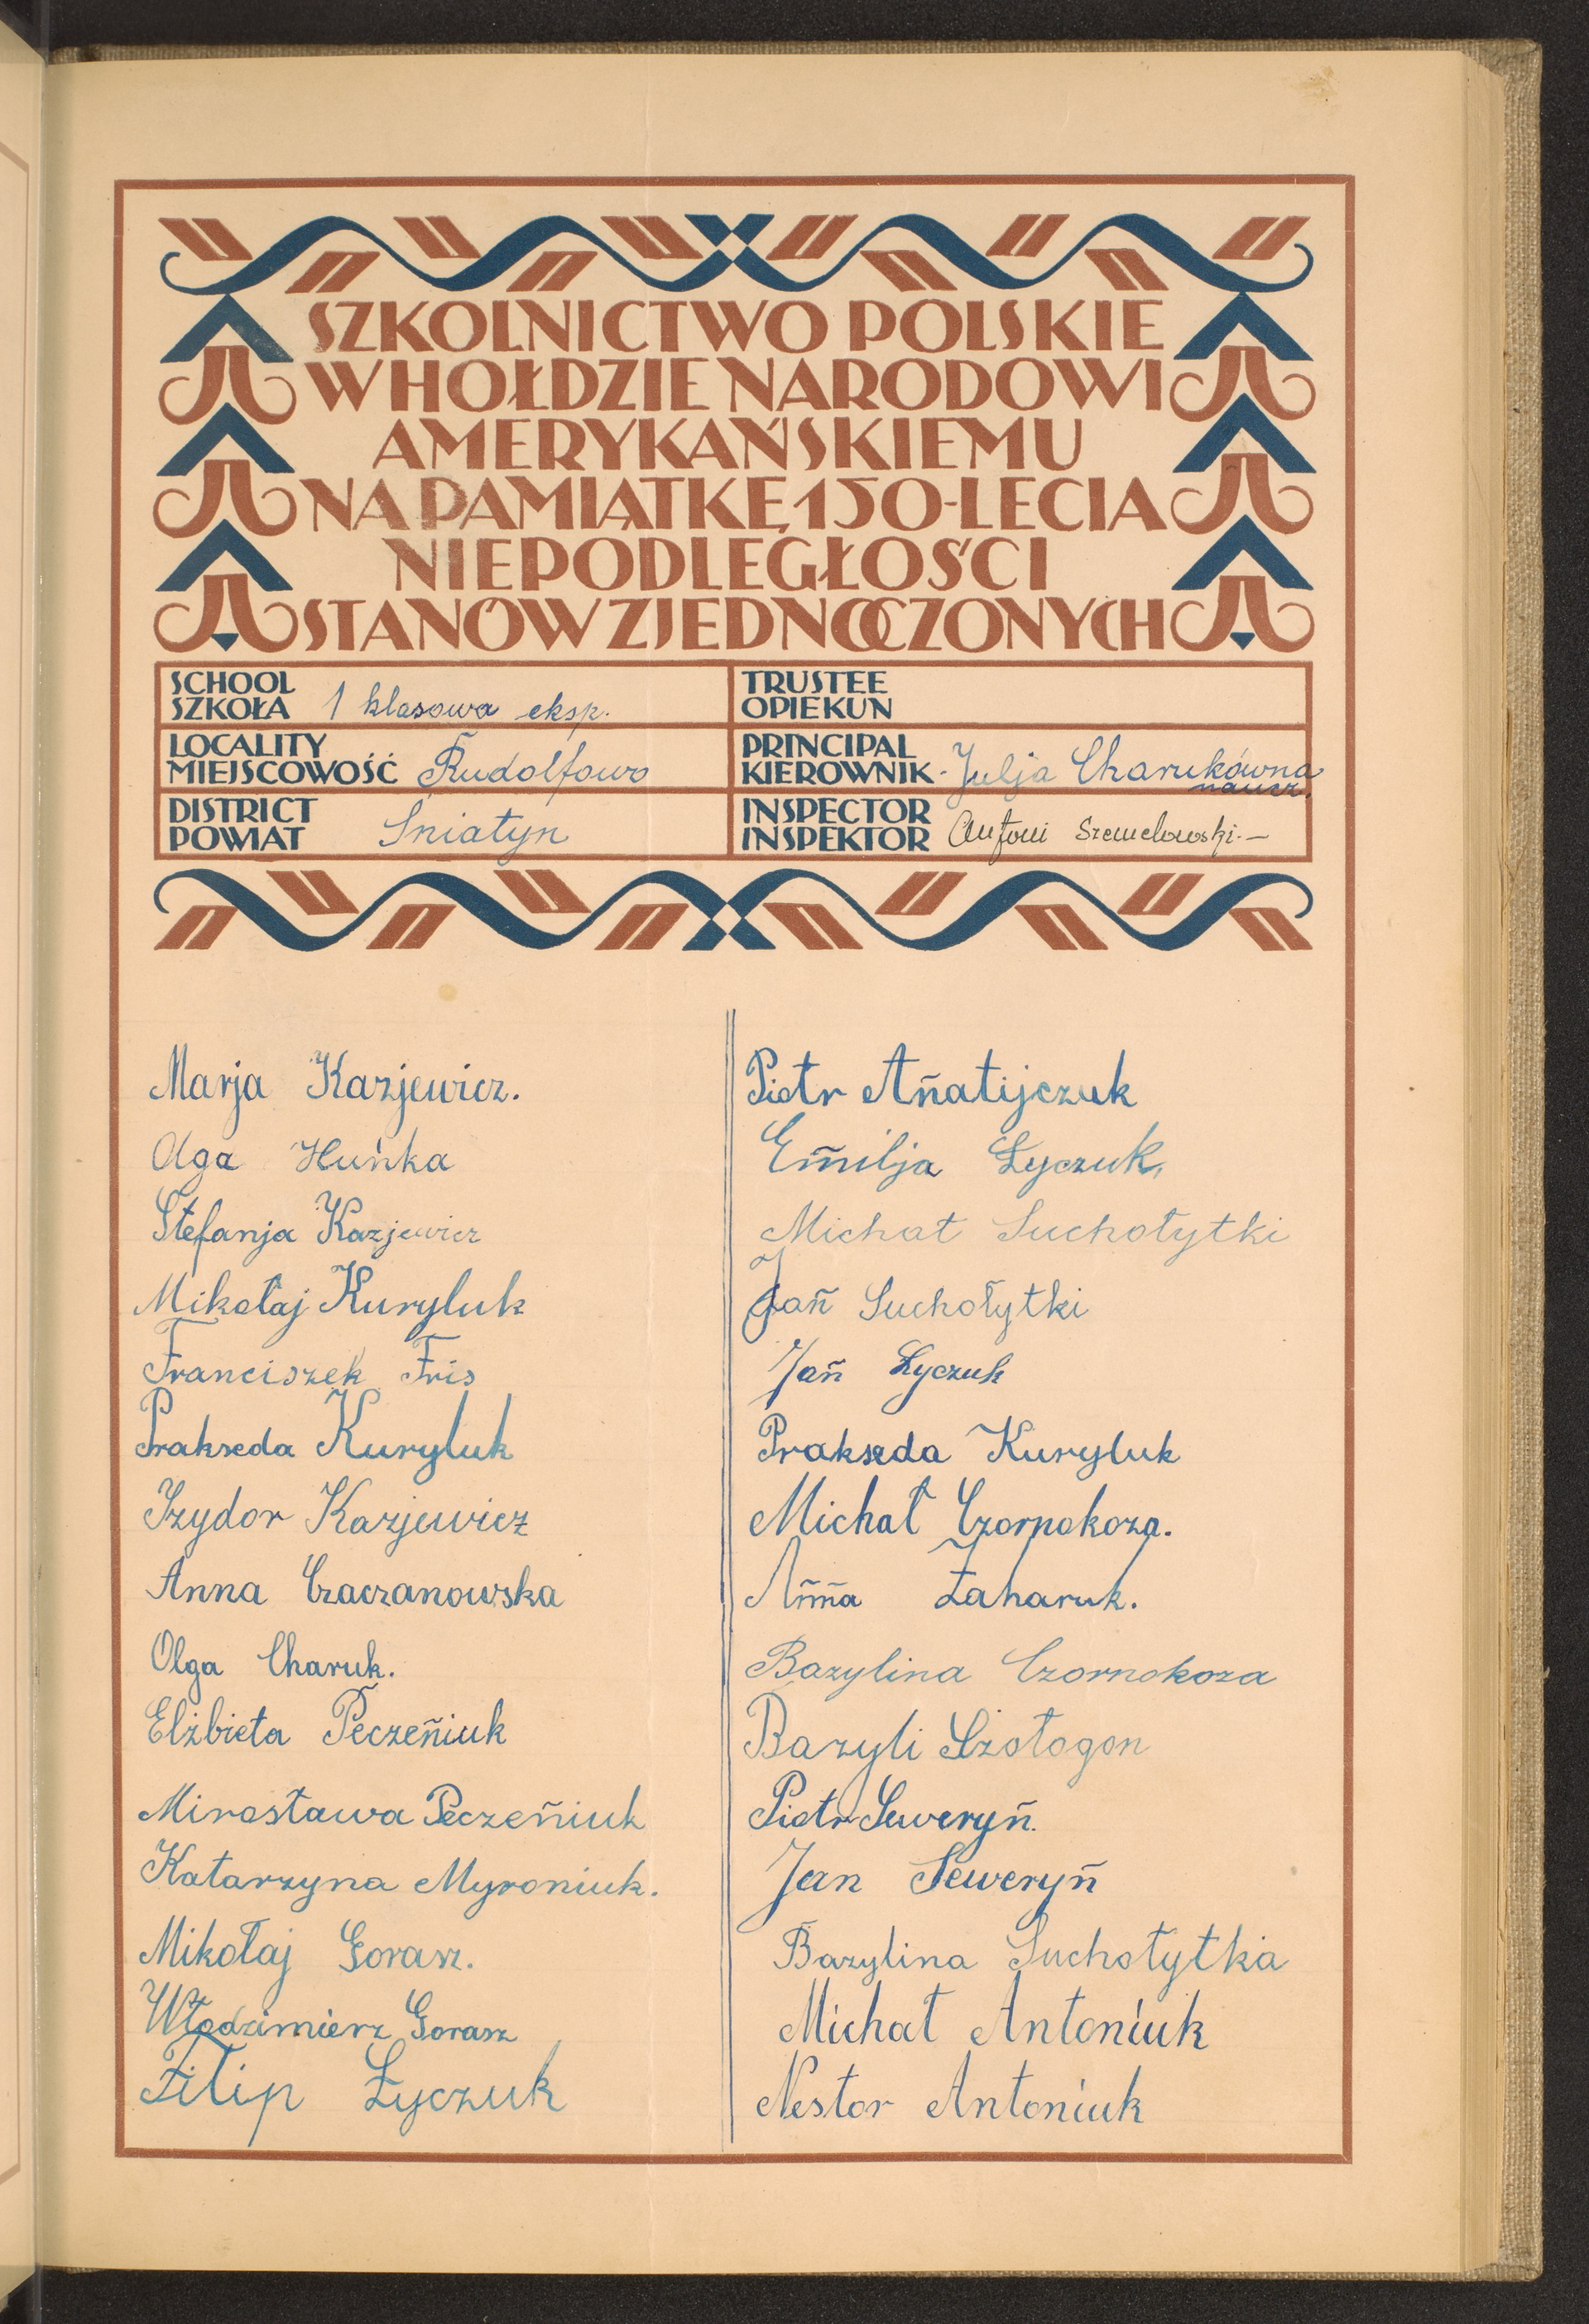 SZKOLNICTWO POLSKIE
W HOŁDZIE NARODOWI
AMERYKAŃSKIEMU
NA PAMIĄTKĘ 150-LECIA
NIEPODLEGŁOŚCI
STANÓW ZJEDNOCZONYCH
SCHOOL
SZKOŁA 1 klasowa eksp.
TRUSTEE
OPIEKUN
LOCALITY
MIEJSCOWOŚĆ Rudolfowo
PRINCIPAL
KIEROWNIK Julja Charukówna
naucz.
DISTRICT
POWIAT Śniatyn
INSPECTOR
INSPEKTOR Antoni Szemelowski.—
Marja Kazjewicz.
Olga Huńka
Stefanja Kazjewicz
Mikołaj Kuryluk
Franciszek Fris
Prakseda Kuryluk
Izydor Kazjewicz
Anna Czaczanowska
Olga Charuk.
Elżbieta Peczeñiuk
Mirosława Peczeñiuk
Katarzyna Myroniuk.
Mikołaj Gorasz.
Włodzimierz Gorasz
Filip Łyczuk
Piotr Añatijczuk
Emilja Łyczuk,
Michał Suchołytki
Jañ Suchołytki
Jañ Łyczuk
Prakseda Kuryluk
Michał Czornokoza.
Añña Zaharuk.
Bazylina Czornokoza
Bazyli Szołogon
Piotr Seweryñ.
Jan Seweryñ
Bazylina Suchołytka
Michał Antoniuk
Nestor Antoniuk